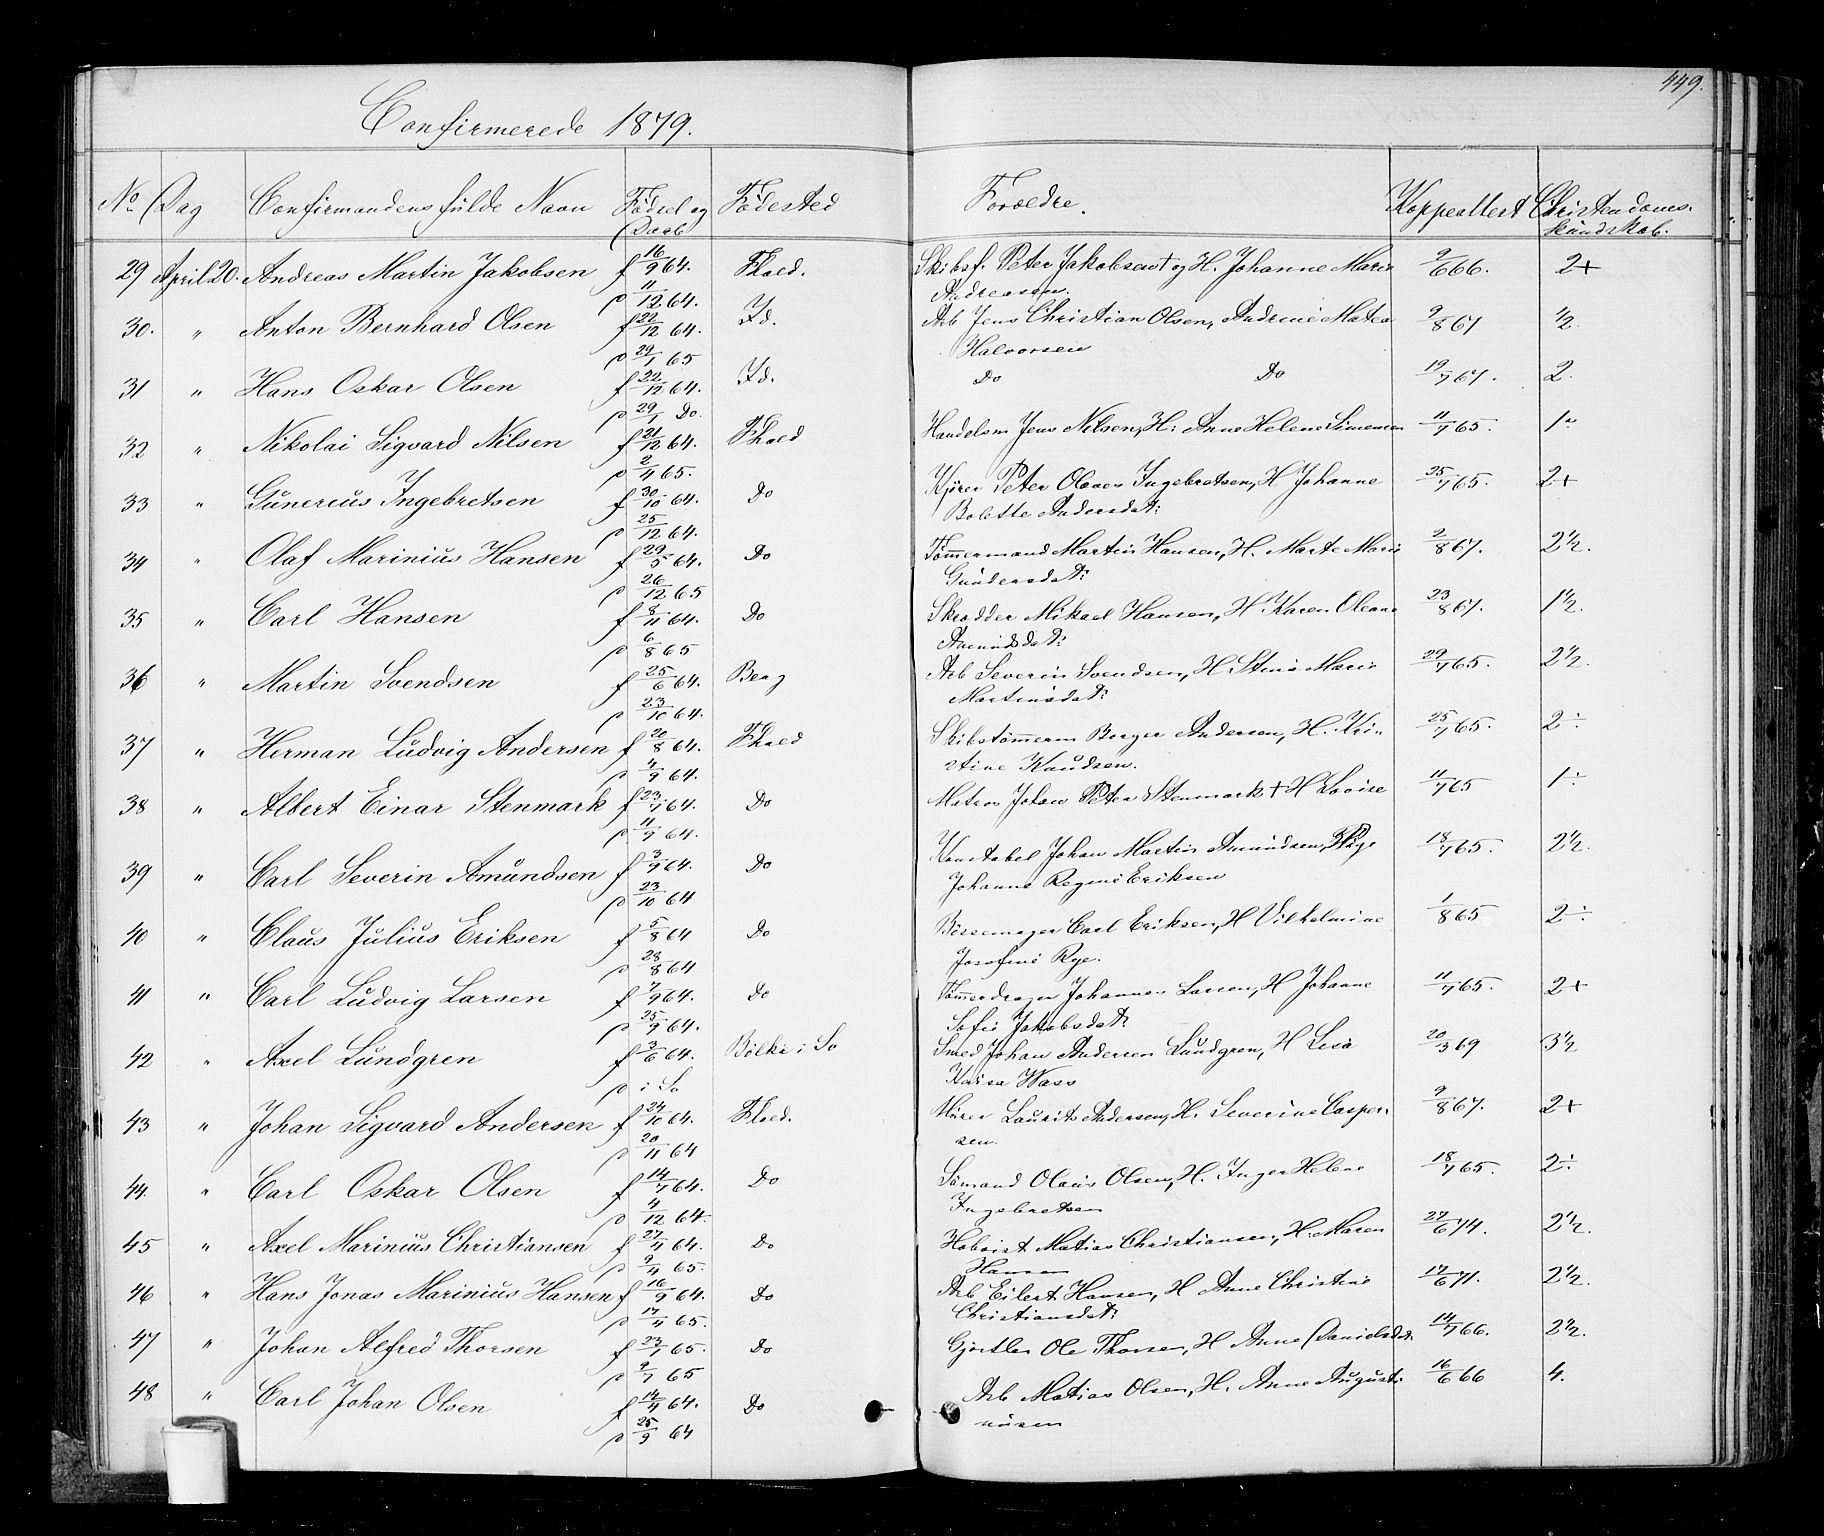 449.
Confirmerede 1879.
No Dag Confirmandens fulde Navn Fødsel og Daab Fødested Forældre. Koppeattest Christendoms-kundskab.
29 April 20. Andreas Martin Jakobsen f 16/9 64. Fhald. Skibsf. Peter Jakobsen † og H. Johanne Marie 9/6 66. 2+
d 11/12 64. Andreasen.
30. " Anton Bernhard Olsen f 22/12 64. Id. Arb Jens Christian Olsen, Andrine Matea 9/8 67 1/2.
d 29/1 65 Halvorsen
31 " Hans Oskar Olsen f 22/12 64. Id. Do Do 19/7 67. 2.
d 29/1 Do.
32 " Nikolai Sigvard Nilsen f 21/12 64. Fhald Handelsm Jens Nilsen, H: Anne Helene Simensen 11/7 65. 1
d 2/4 65.
33 " Gunerius Ingebretsen f 30/10 64. Do Kjører Peter Olaves Ingebretsen, H Johanne 25/7 65. 2+
d 25/12 64. Bolette Andersdat:
34 " Olaf Marinius Hansen f 29/5 64. Do Tømmermand Martin Hansen, H. Marte Marie 2/8 67. 2 1/2.
d 26/12 65 Gundersdat:
35 " Carl Hansen f 8/11 64. Do Skrædder Mikael Hansen, H. Karen Oleane 23/8 67. 1 1/2.
d 6/8 65 Amundsdat:
36 " Martin Svendsen f 25/6 64. Berg Arb Severin Svendsen, H. Stine Marie 29/7 65. 2 1/2.
d 23/10 64. Martinsdat:
37 " Herman Ludvig Andersen f 20/8 64. Fhald Skibstømmerm Borger Andersen, H. Kri- 25/7 65. 2 ÷
d 4/9 64. stine Knudsen.
38 " Albert Einar Stenmark f 23/7 64. Do Matros Johan Peter Stenmark † H Lovise 11/7 65 1 ÷
d 11/9 64.
39 " Carl Severin Amundsen f 3/9 64. Do Konstabel Johan Martin Amundsen, Pige 18/7 65. 2 1/2.
d 23/10 64 Johanne Regine Eriksen
40 " Claus Julius Eriksen f 5/8 64 Do Børssemager Carl Eriksen, H Vilhelmine 1/8 65 2 ÷
d 28/8 64 Josefine Rye.
41 " Carl Ludvig Larsen f 7/9 64. Do Tømmerdrager Johannes Larsen, H Johanne 11/7 65. 2+
d 25/9 64. Sofie Jakobsdat:
42 " Axel Lundgren f 3/6 64. Bölke i So Smed Johan Andersen Lundgren, H Lesa 20/3 69 3 1/2
d i So Kaisa Wass
43 " Johan Sigvard Andersen f 24/10 64. Fhald. Murer Laurits Andersen, H. Severine Casper- 9/8 67. 2+
d 20/11 64 sen.
44. " Carl Oskar Olsen f 14/7 64. Do Sømand Olaus Olsen, H. Inger Helene 18/7 65. 2 ÷
d 4/12 64. Ingebretsen
45 " Axel Marinius Christiansen f 27/11 64. Do Hoboist Matias Christiansen, H. Maren 27/6 74. 2 1/2.
d 9/4 65. Hansen
46 " Hans Jonas Marinius Hansen f 16/9 64. Do Arb Eilert Hansen, H Anne Christine 17/6 71. 2 1/2.
d 17/4 65. Christiansdat:
47 " Johan Alfred Thorsen f 23/1 65. Do Gjørtler Ole Thorsen, H Anne Danielsdat: 14/7 66. 2 1/2.
d 9/7 65
48 " Carl Johan Olsen f 14/4 64. Do Arb Matias Olsen, H. Anne Augusti- 16/6 66 4.
d 25/9 64 nusen